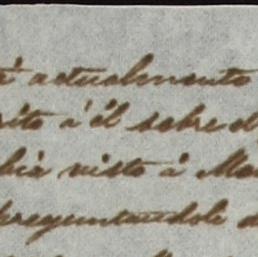 à actualmente
rito á él sobre d
bia visto á Ma
preguntandole d